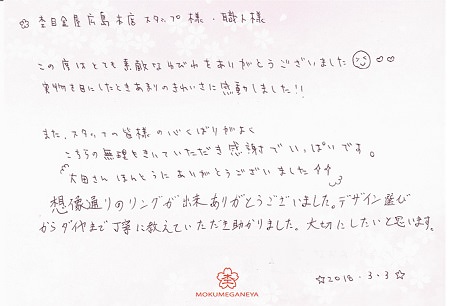 ☆ 杢目金屋広島本店 スタッフ様・職人様
この度はとても素敵なゆびわをありがとうございました ♡♡
実物を目にしたときあまりのきれいさに感動しました!!
また、スタッフの皆様の心くばりがよく
こちらの無理をきいていただき感謝でいっぱいです。
太田さん ほんとうにありがとうございました
想像通りのリングが出来ありがとうございました。デザイン選び
からダイヤまで丁寧に教えていただき助かりました。大切にしたいと思います。
☆2018.3.3☆
MOKUMEGANEYA